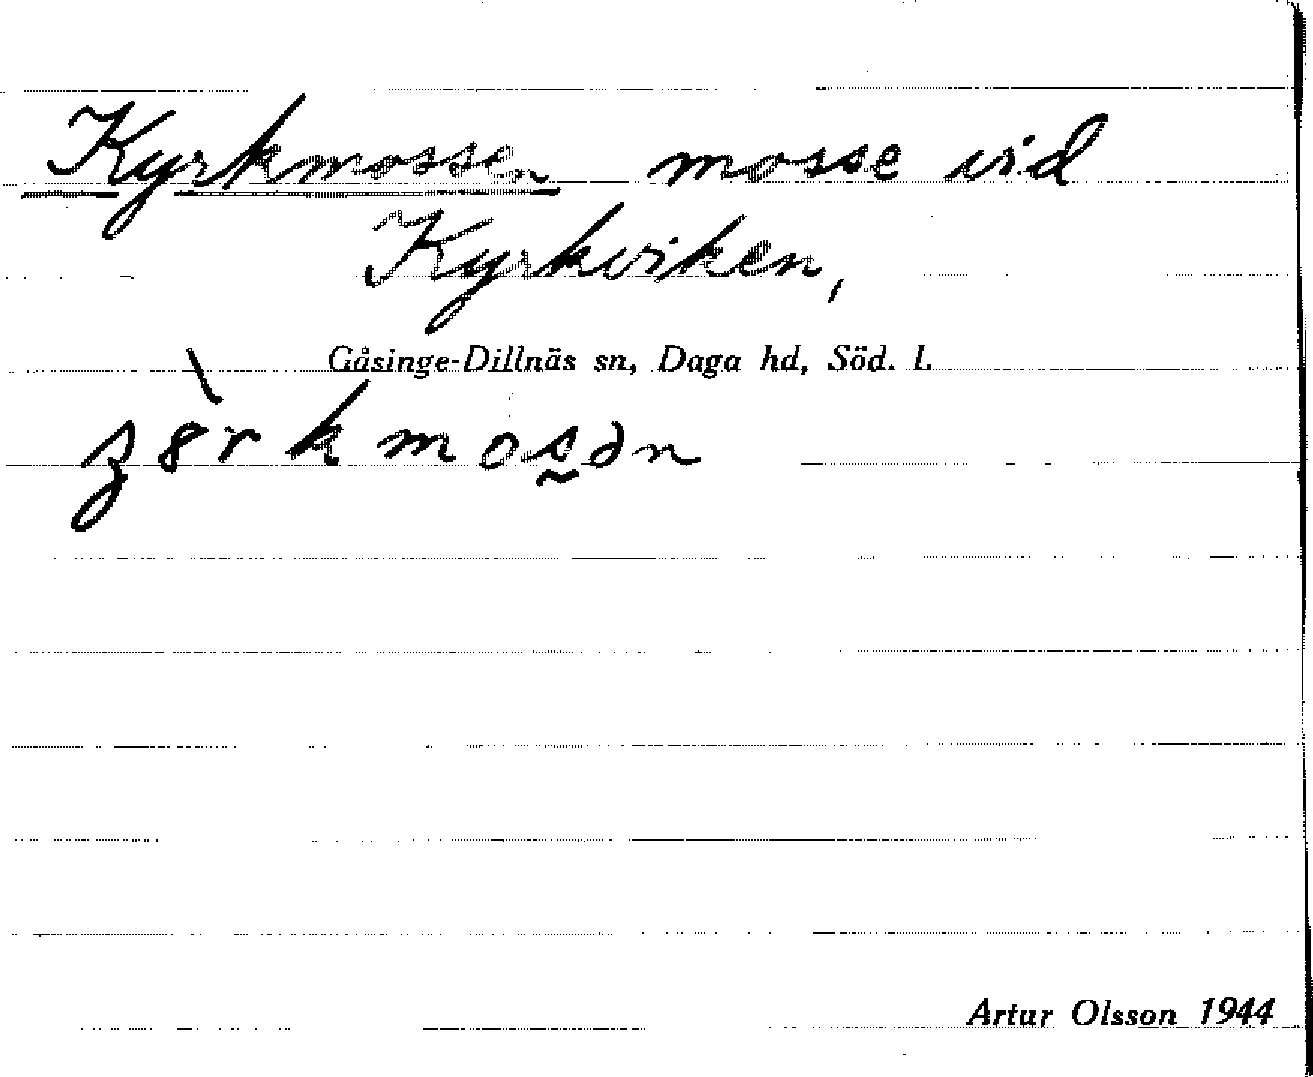 Kyrkmossen mosse vid
Kyrkviken,
Gåsinge-Dillnäs sn, Daga hd, Söd. l.
Artur Olsson 1944